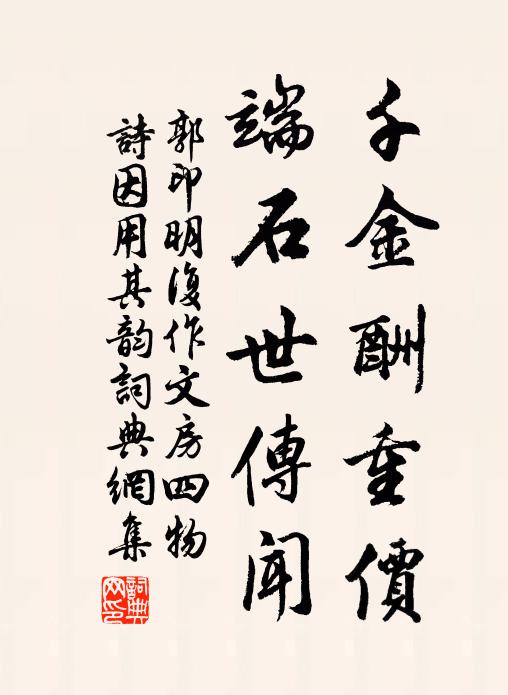 千金酬重價
端石世傳聞
郭印明復作文房四物
詩因用其韵詞典網集
詞典網印